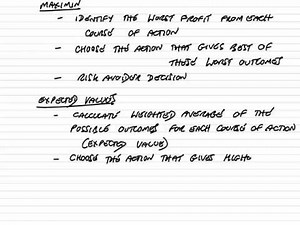 MAXIMIN
- IDENTIFY THE WORST PROFIT FROM EACH
COURSE OF ACTION
- CHOOSE THE ACTION THAT GIVES BEST OF
THOSE WORST OUTCOMES
- RISK AVOIDER DECISION
EXPECTED VALUES
- CALCULATE WEIGHTED AVERAGE OF THE
POSSIBLE OUTCOMES FOR EACH COURSE OF ACTION
(EXPECTED VALUE)
- CHOOSE THE ACTION THAT GIVES HIGH